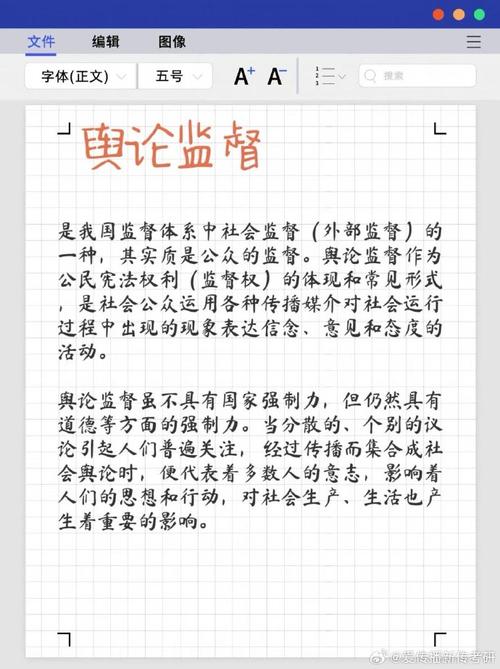 文件 编辑 图像
字体(正文) 五号 A+ A- 1 2 3 搜索
舆论监督
是我国监督体系中社会监督（外部监督）的
一种，其实质是公众的监督。舆论监督作为
公民宪法权利（监督权）的体现和常见形式
，是社会公众运用各种传播媒介对社会运行
过程中出现的现象表达信念、意见和态度的
活动。
舆论监督虽不具有国家强制力，但仍然具有
道德等方面的强制力。当分散的、个别的议
论引起人们普遍关注，经过传播而集合成社
会舆论时，便代表着多数人的意志，影响着
人们的思想和行动，对社会生产、生活也产
生着重要的影响。
@爱传播新传考研